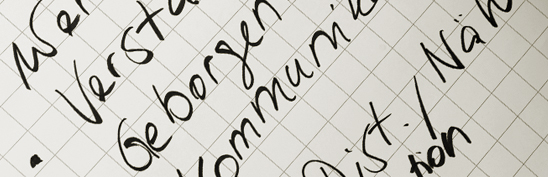 Wer
Verstä
Geborgen
Kommunik
Dist. / Näh
tion